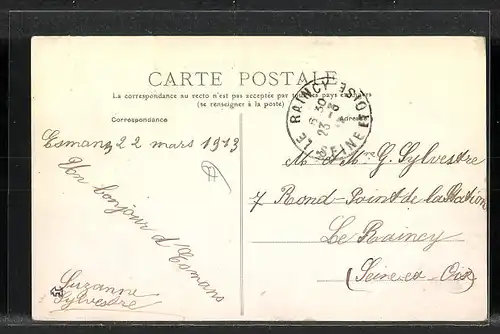 CARTE POSTALE
La correspondance au recto n'est pas acceptée par tous les pays étrangers
(se renseigner à la poste)
Correspondance
Adresse
LE RAINCY
SEINE ET OISE
6 30
23 - 3
Esmans 22 mars 1913
Un bonjour d'Esmans
Suzanne
Sylvestre
Mr et Mme G. Sylvestre
7 Rond-Point de la Station
Le Raincy
(Seine et Oise)